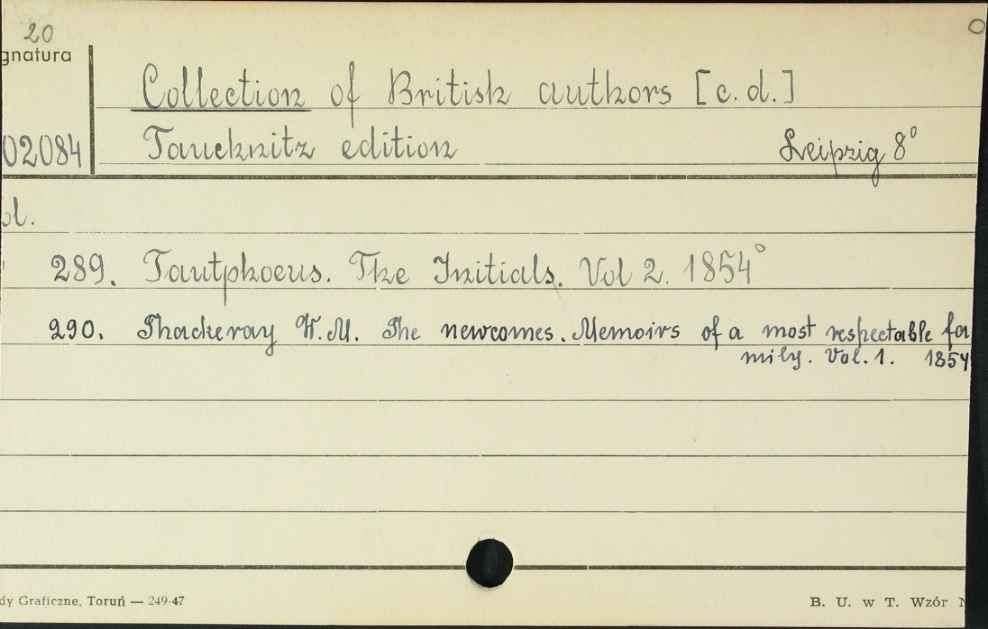 20
gnatura
Collection of British authors [c. d.]
02084
Tauchnitz edition
Leipzig 8°
d.
289. Tautphoeus. The Initials. Vol 2. 1854°
290. Thackeray W. M. The newcomes. Memoirs of a most respectable fa
mily. Vol. 1. 1854
dy Graficzne, Toruń — 249-47
B. U. w T. Wzór N